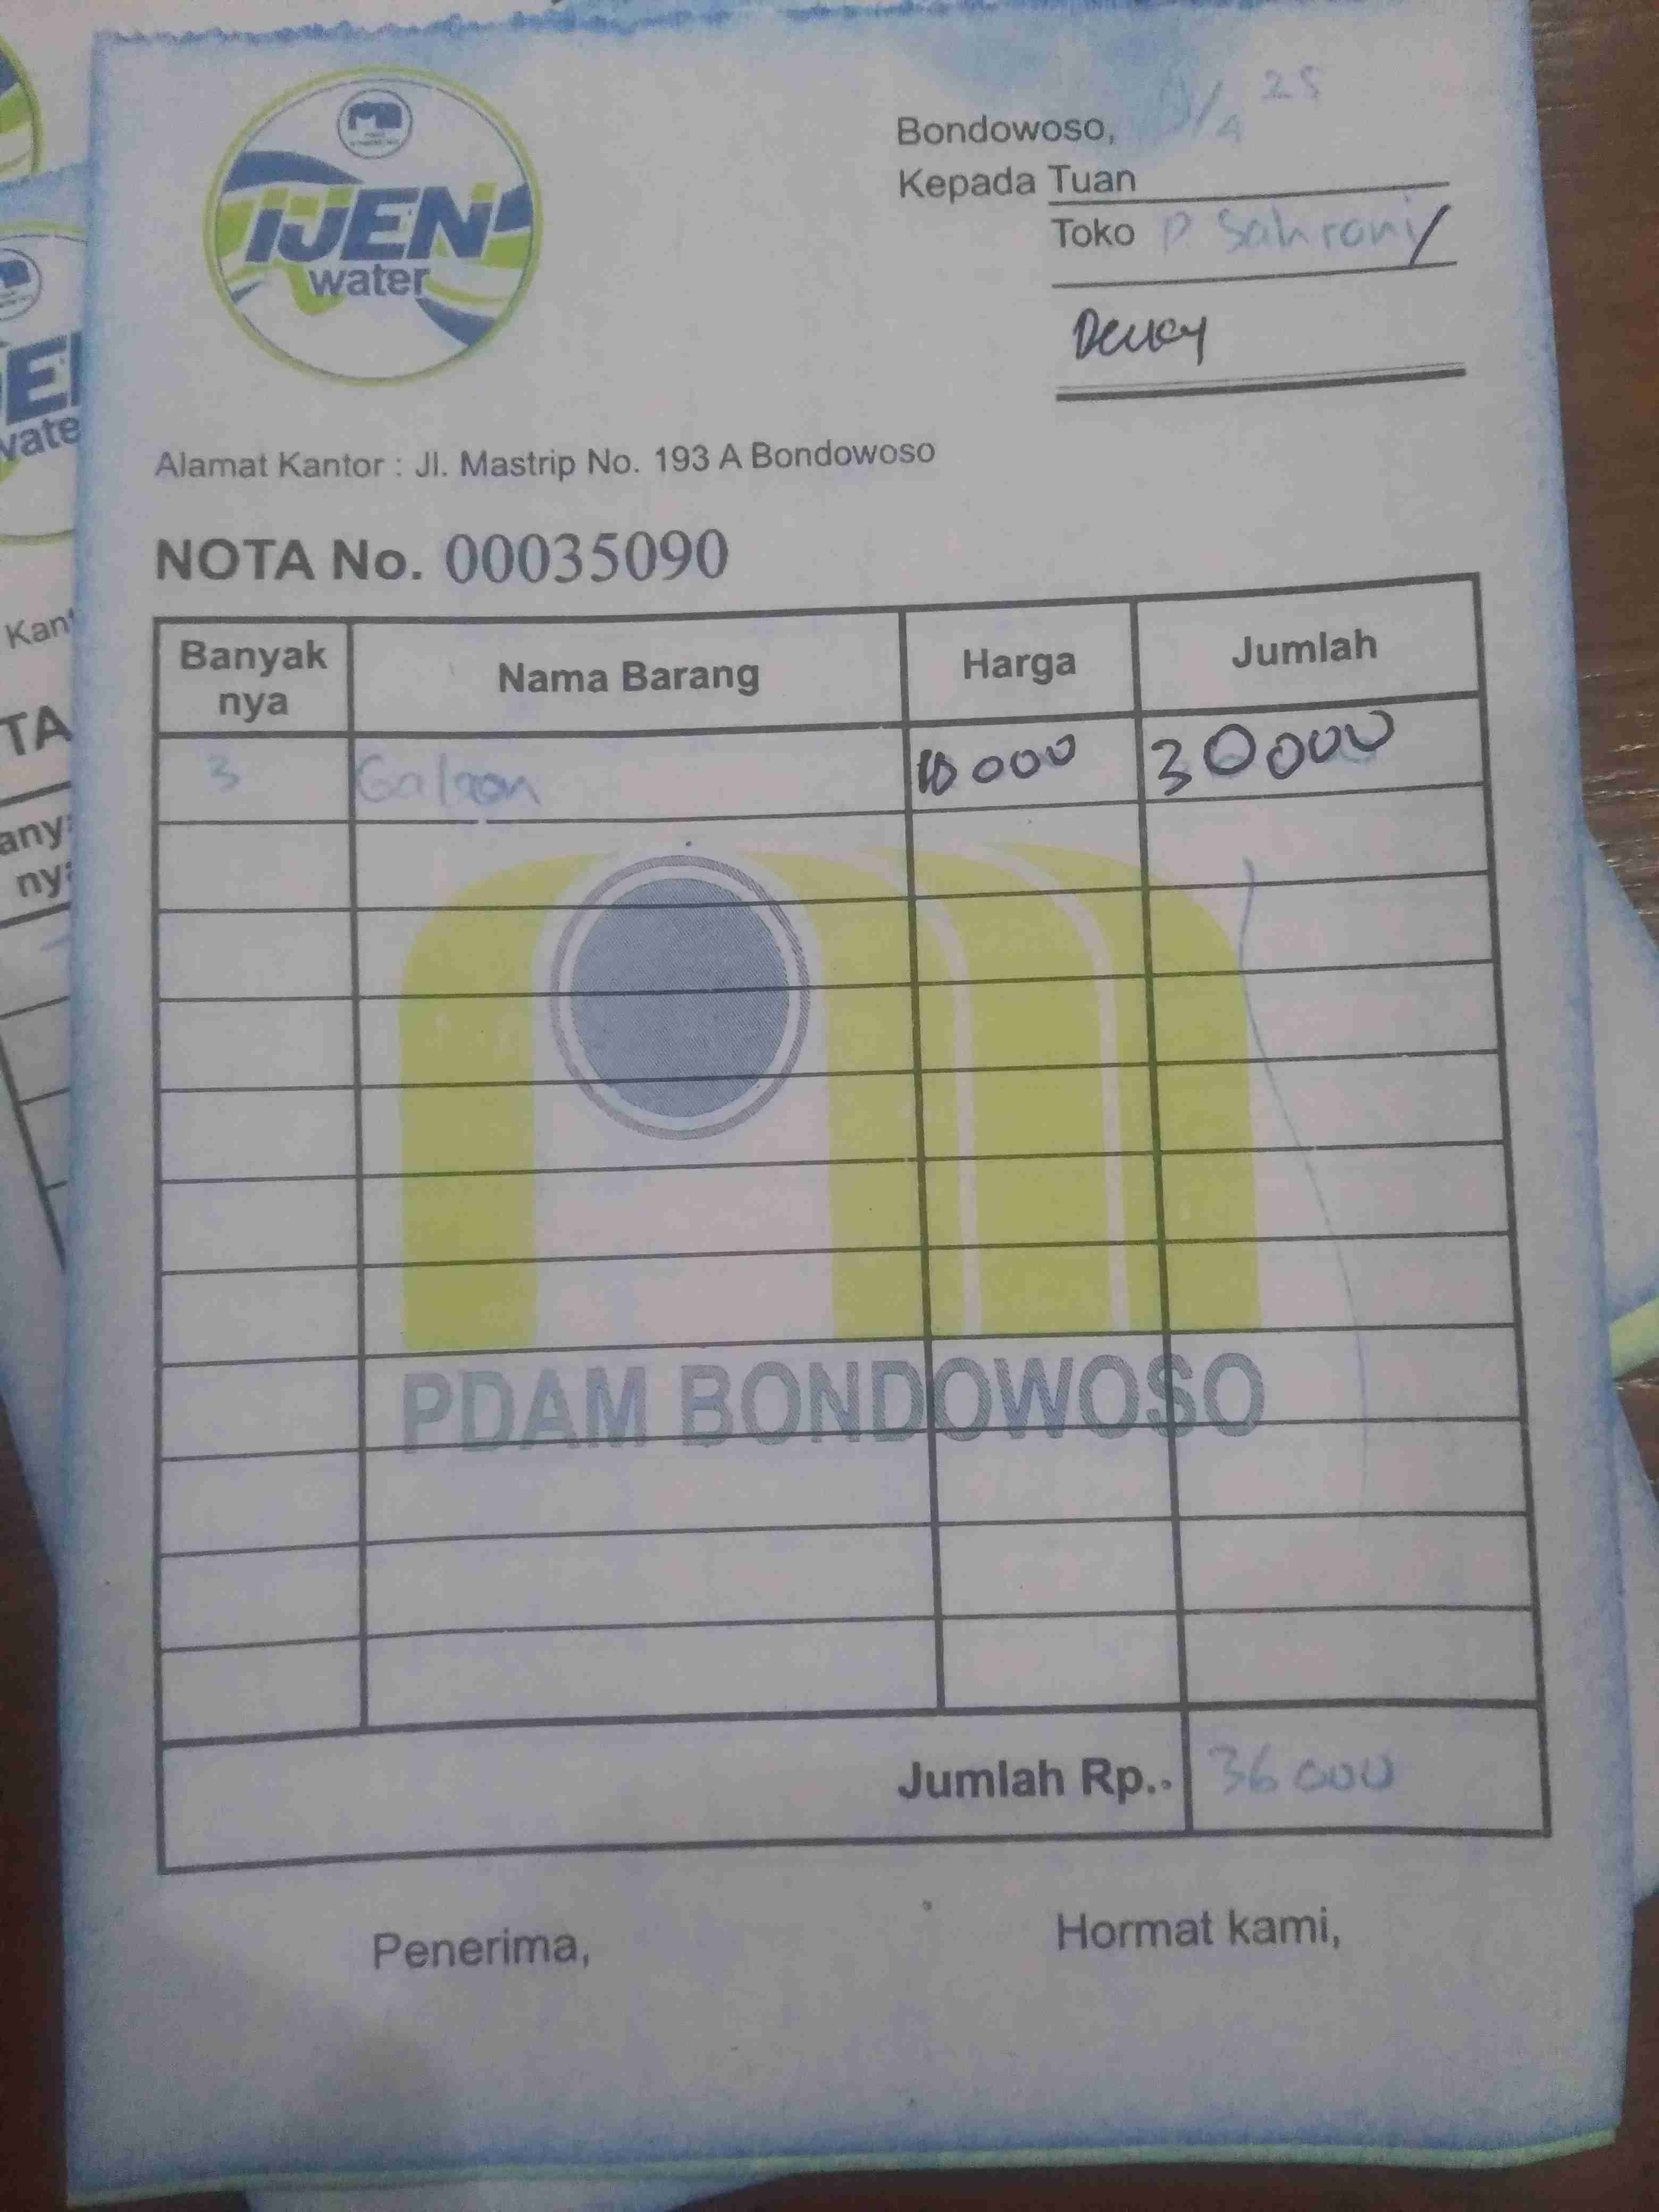 IJEN
water
Bondowoso, 9/4 25
Kepada Tuan
Toko P Sahroni /
Alamat Kantor : Jl. Mastrip No. 193 A Bondowoso
NOTA No. 00035090
Banyak nya Nama Barang Harga Jumlah
3 Galoon 10 000 30 000
PDAM BONDOWOSO
Jumlah Rp.. 36 000
Penerima, Hormat kami,